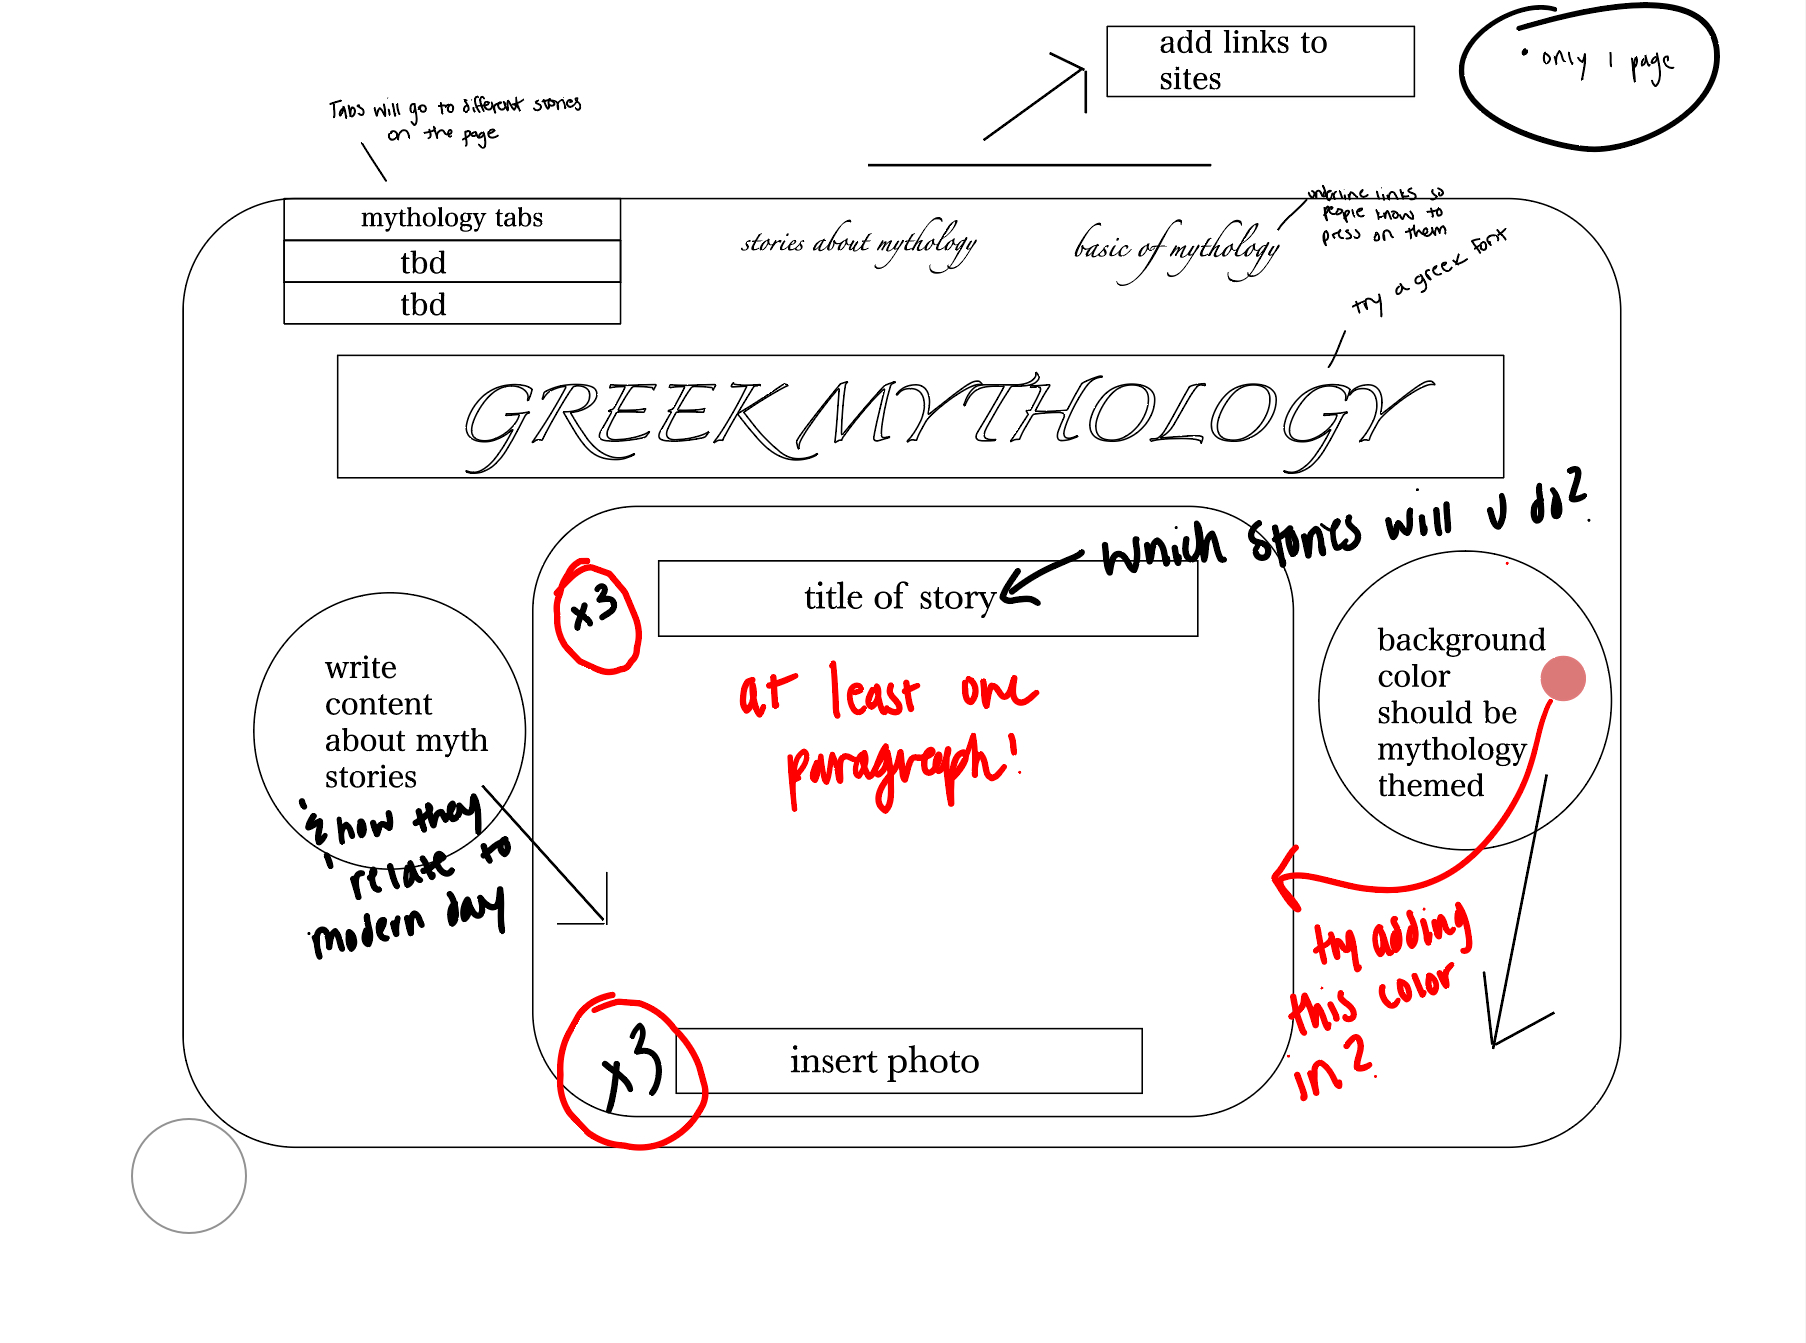 add links to
sites
• only 1 page
Tabs will go to different stories
on the page
mythology tabs
tbd
tbd
stories about mythology
basic of mythology
underline links so
people know to
press on them
try a greek font
GREEK MYTHOLOGY
which stories will u do?
x3
title of story
at least one
paragraph!
write
content
about myth
stories
& how they
relate to
modern day
background
color
should be
mythology
themed
try adding
this color
in?
x3
insert photo